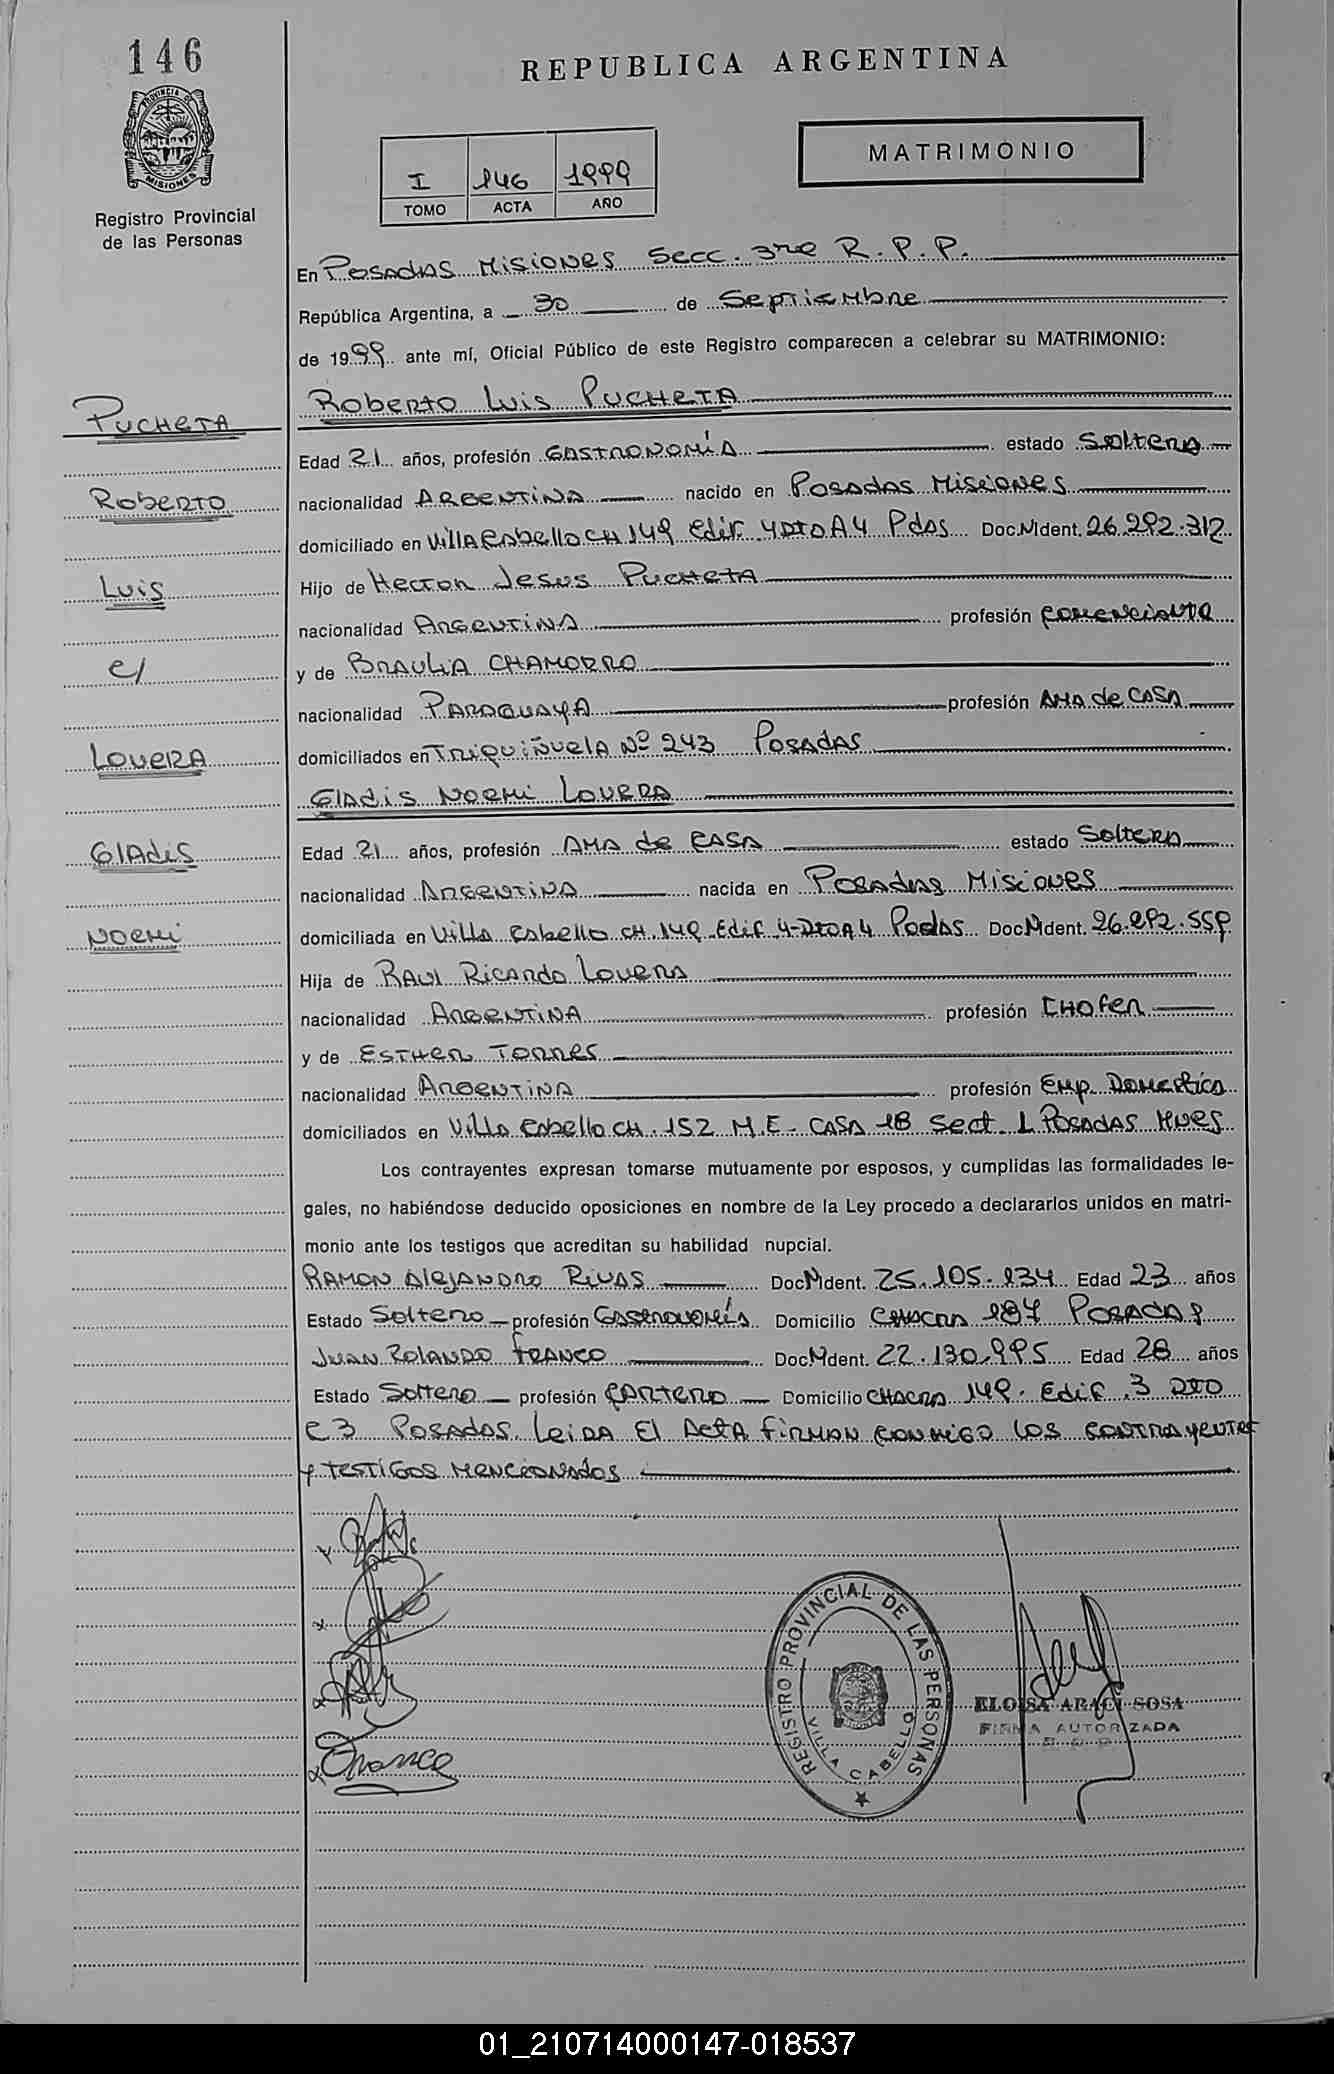 146
REPUBLICA ARGENTINA
PROVINCIA DE MISIONES
Registro Provincial
de las Personas
I 146 1999
TOMO ACTA AÑO
MATRIMONIO
En Posadas Misiones Secc. 3ra R. P. P.
República Argentina, a 30 de Septiembre
de 1999 ante mí, Oficial Público de este Registro comparecen a celebrar su MATRIMONIO:
Pucheta
Roberto
Luis
c/
Lovera
Gladis
Noemi
Roberto Luis Pucheta
Edad 21 años, profesión Gastronomía estado Soltero
nacionalidad Argentina nacido en Posadas Misiones
domiciliado en Villa Cabello CH 149 Edif. 4 Dto A4 Pdas Doc. N Ident. 26.292.312
Hijo de Hector Jesus Pucheta
nacionalidad Argentina profesión Comerciante
y de Braulia Chamorro
nacionalidad Paraguaya profesión Ama de Casa
domiciliados en Triquiñuela Nº 243 Posadas
Gladis Noemi Lovera
Edad 21 años, profesión Ama de Casa estado Soltera
nacionalidad Argentina nacida en Posadas Misiones
domiciliada en Villa Cabello CH. 149 Edif 4-Dto A4 Podas Doc. N Ident. 26.292.559
Hija de Raul Ricardo Lovera
nacionalidad Argentina profesión Chofer
y de Esther Torres
nacionalidad Argentina profesión Emp. Domestica
domiciliados en Villa Cabello CH. 152 M.E. Casa 18 Sect. L Posadas Mnes
Los contrayentes expresan tomarse mutuamente por esposos, y cumplidas las formalidades le-
gales, no habiéndose deducido oposiciones en nombre de la Ley procedo a declararlos unidos en matri-
monio ante los testigos que acreditan su habilidad nupcial.
Ramon Alejandro Rivas Doc. N Ident. 25.105.134 Edad 23 años
Estado Soltero profesión Gastronomía Domicilio Chacra 187 Posadas
Juan Rolando Franco Doc. N Ident. 22.130.995 Edad 28 años
Estado Soltero profesión Cartero Domicilio Chacra 149. Edif. 3 Dto
C3 Posadas. Leida El Acta firman conmigo los contrayentes
y testigos mencionados
Franco
REGISTRO PROVINCIAL DE LAS PERSONAS
VILLA CABELLO
ELOISA ARACI SOSA
FIRMA AUTORIZADA
01_210714000147-018537